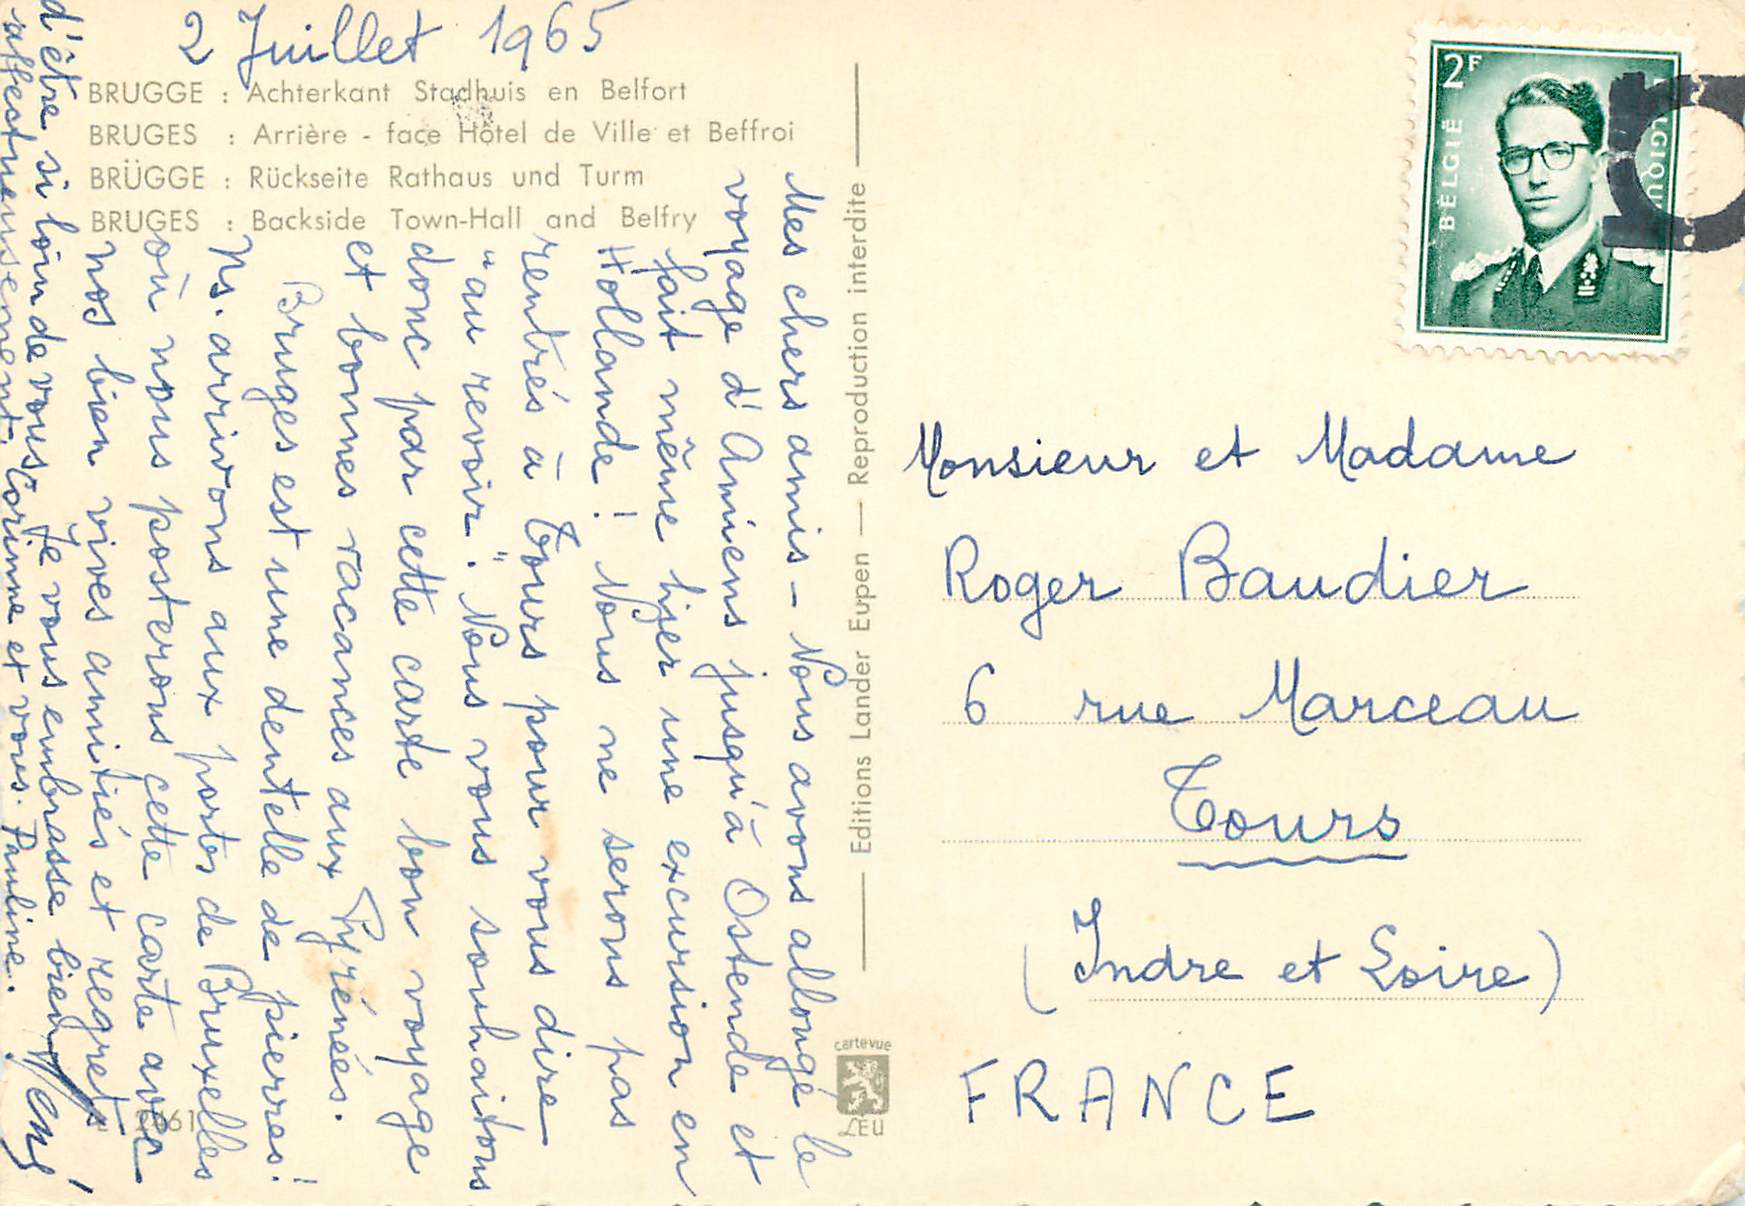 2 Juillet 1965
BRUGGE : Achterkant Stadhuis en Belfort
BRUGES : Arrière - face Hôtel de Ville et Beffroi
BRÜGGE : Rückseite Rathaus und Turm
BRUGES : Backside Town-Hall and Belfry
Mes chers amis - Nous avons allongé le
voyage d'Amiens jusqu'à Ostende et
fait même hier une excursion en
Hollande ! Nous ne serons pas
rentrés à Tours pour vous dire
"au revoir". Nous vous souhaitons
donc par cette carte bon voyage
et bonnes vacances aux Pyrénées.
Bruges est une dentelle de pierres !
Ns. arrivons aux portes de Bruxelles
où nous posterons cette carte avec
nos bien vives amitiés et regrets
d'être si loin de vous. Je vous embrasse bien
affectueusement, Corinne et vous. Pauline.
Editions Lander Eupen — Reproduction interdite
cartevue
LEU
2461
2F
BELGIË
Monsieur et Madame
Roger Baudier
6 rue Marceau
Tours
(Indre et Loire)
FRANCE